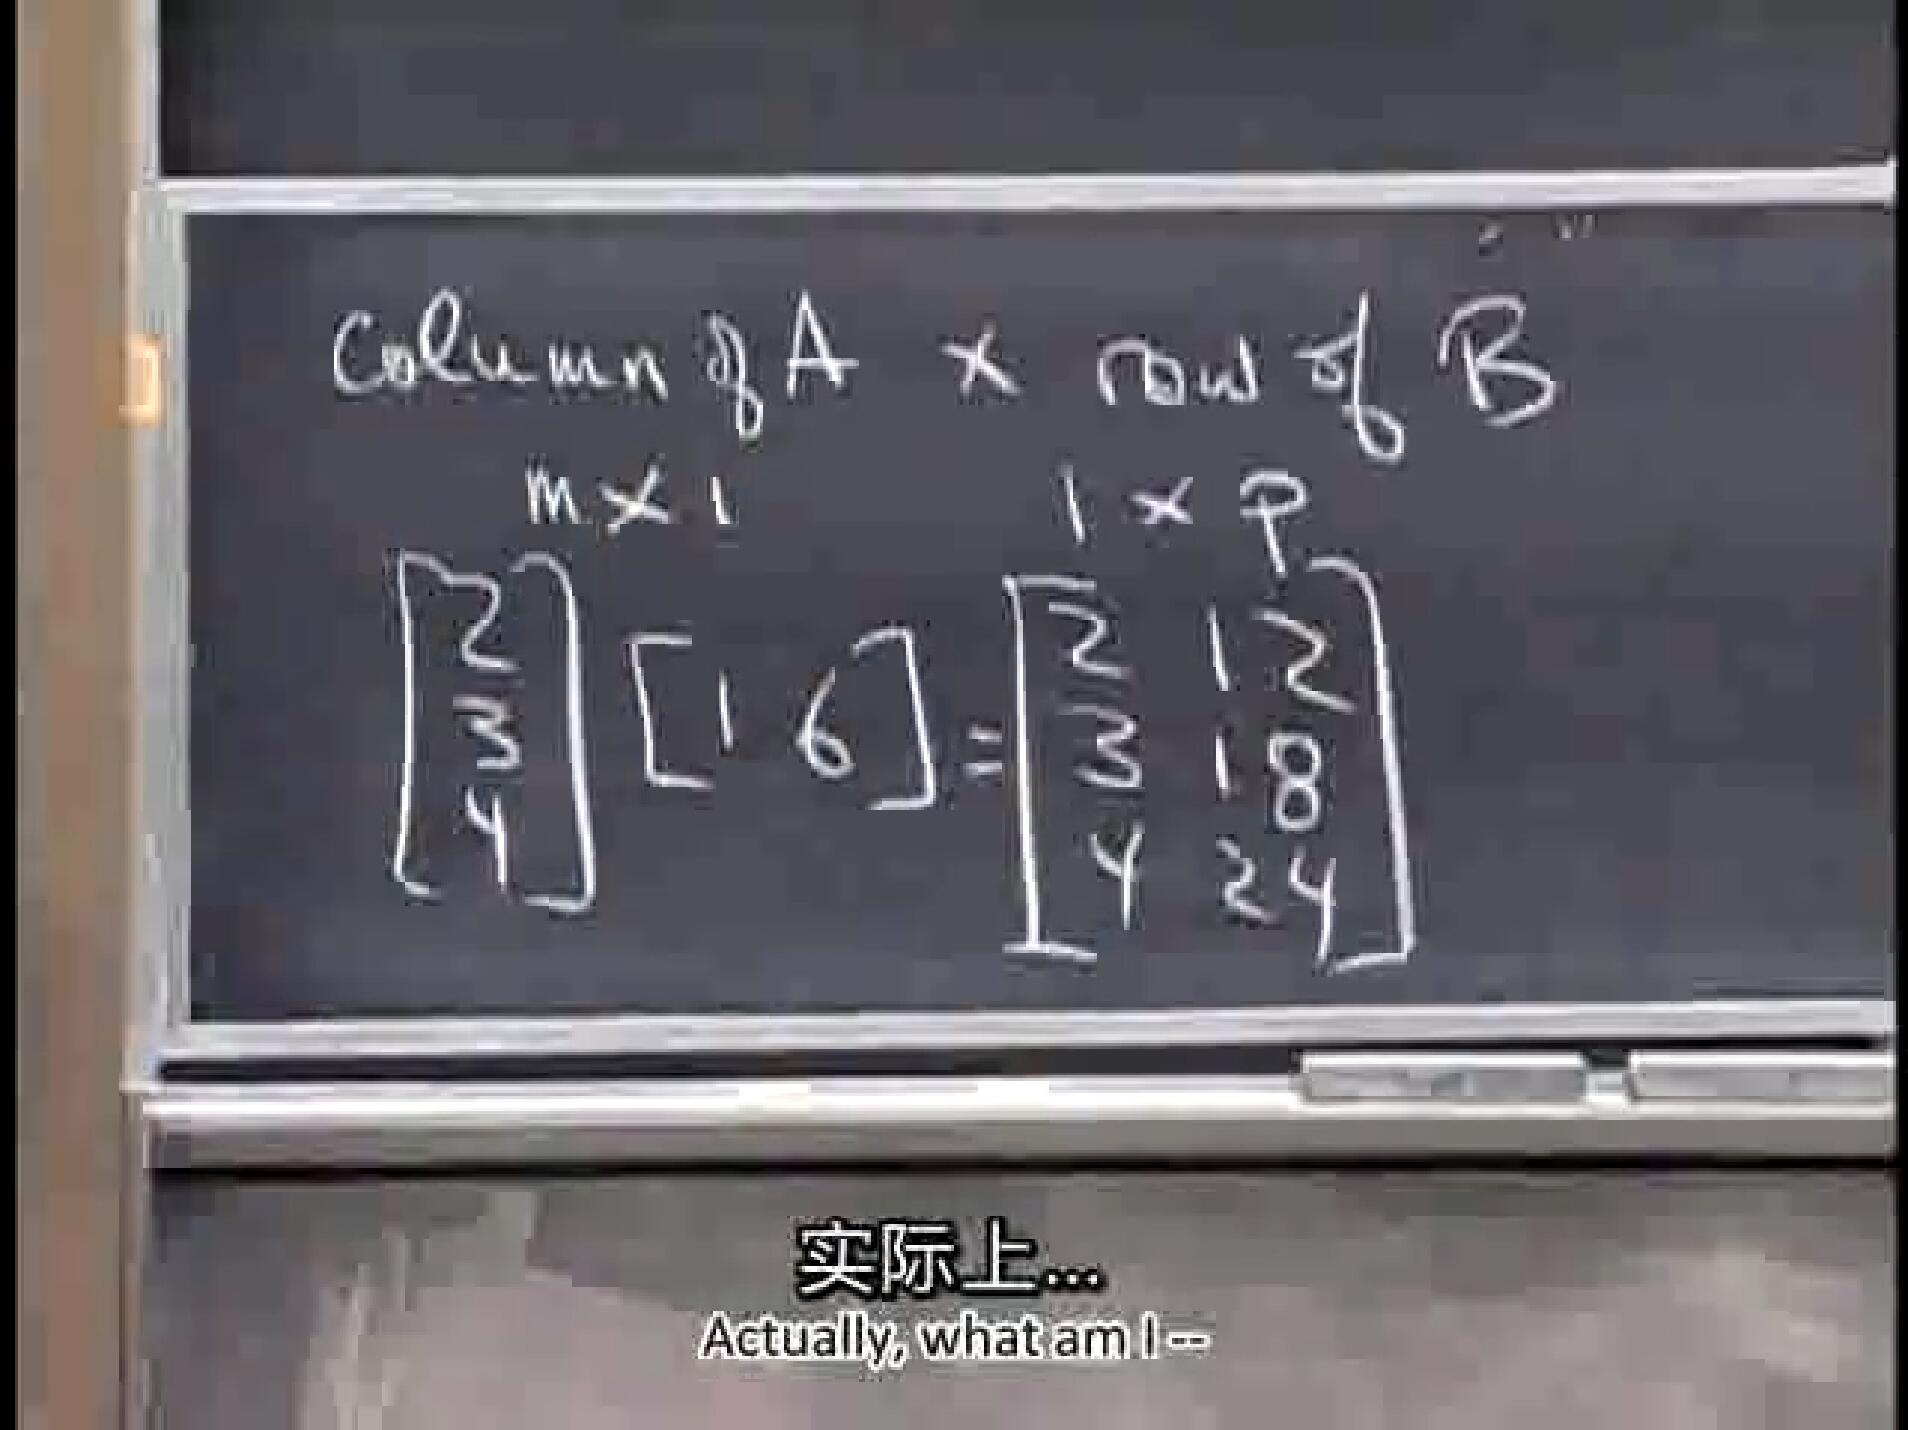 Column of A × row of B
m × 1 1 × p
[2 3 4] [1 6] = [2 12 3 18 4 24]
实际上...
Actually, what am I --